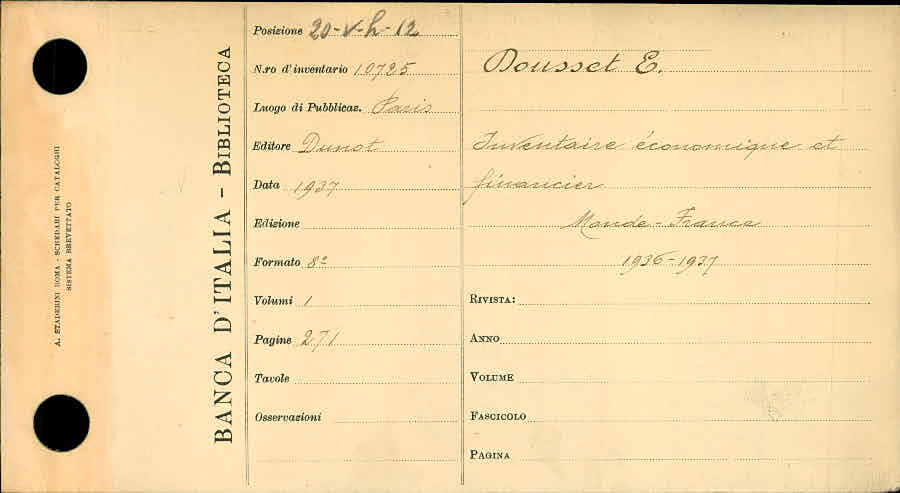 A. STADERINI ROMA - SCHEDARI PER CATALOGHI
SISTEMA BREVETTATO
BANCA D'ITALIA - BIBLIOTECA
Posizione 20-V-h-12
N.ro d'inventario 10725
Luogo di Pubblicaz. Paris
Editore Dunot
Data 1937
Edizione
Formato 8º
Volumi 1
Pagine 271
Tavole
Osservazioni
Dousset E.
Inventaire économique et
financier
Monde-France
1936-1937
RIVISTA:
ANNO
VOLUME
FASCICOLO
PAGINA